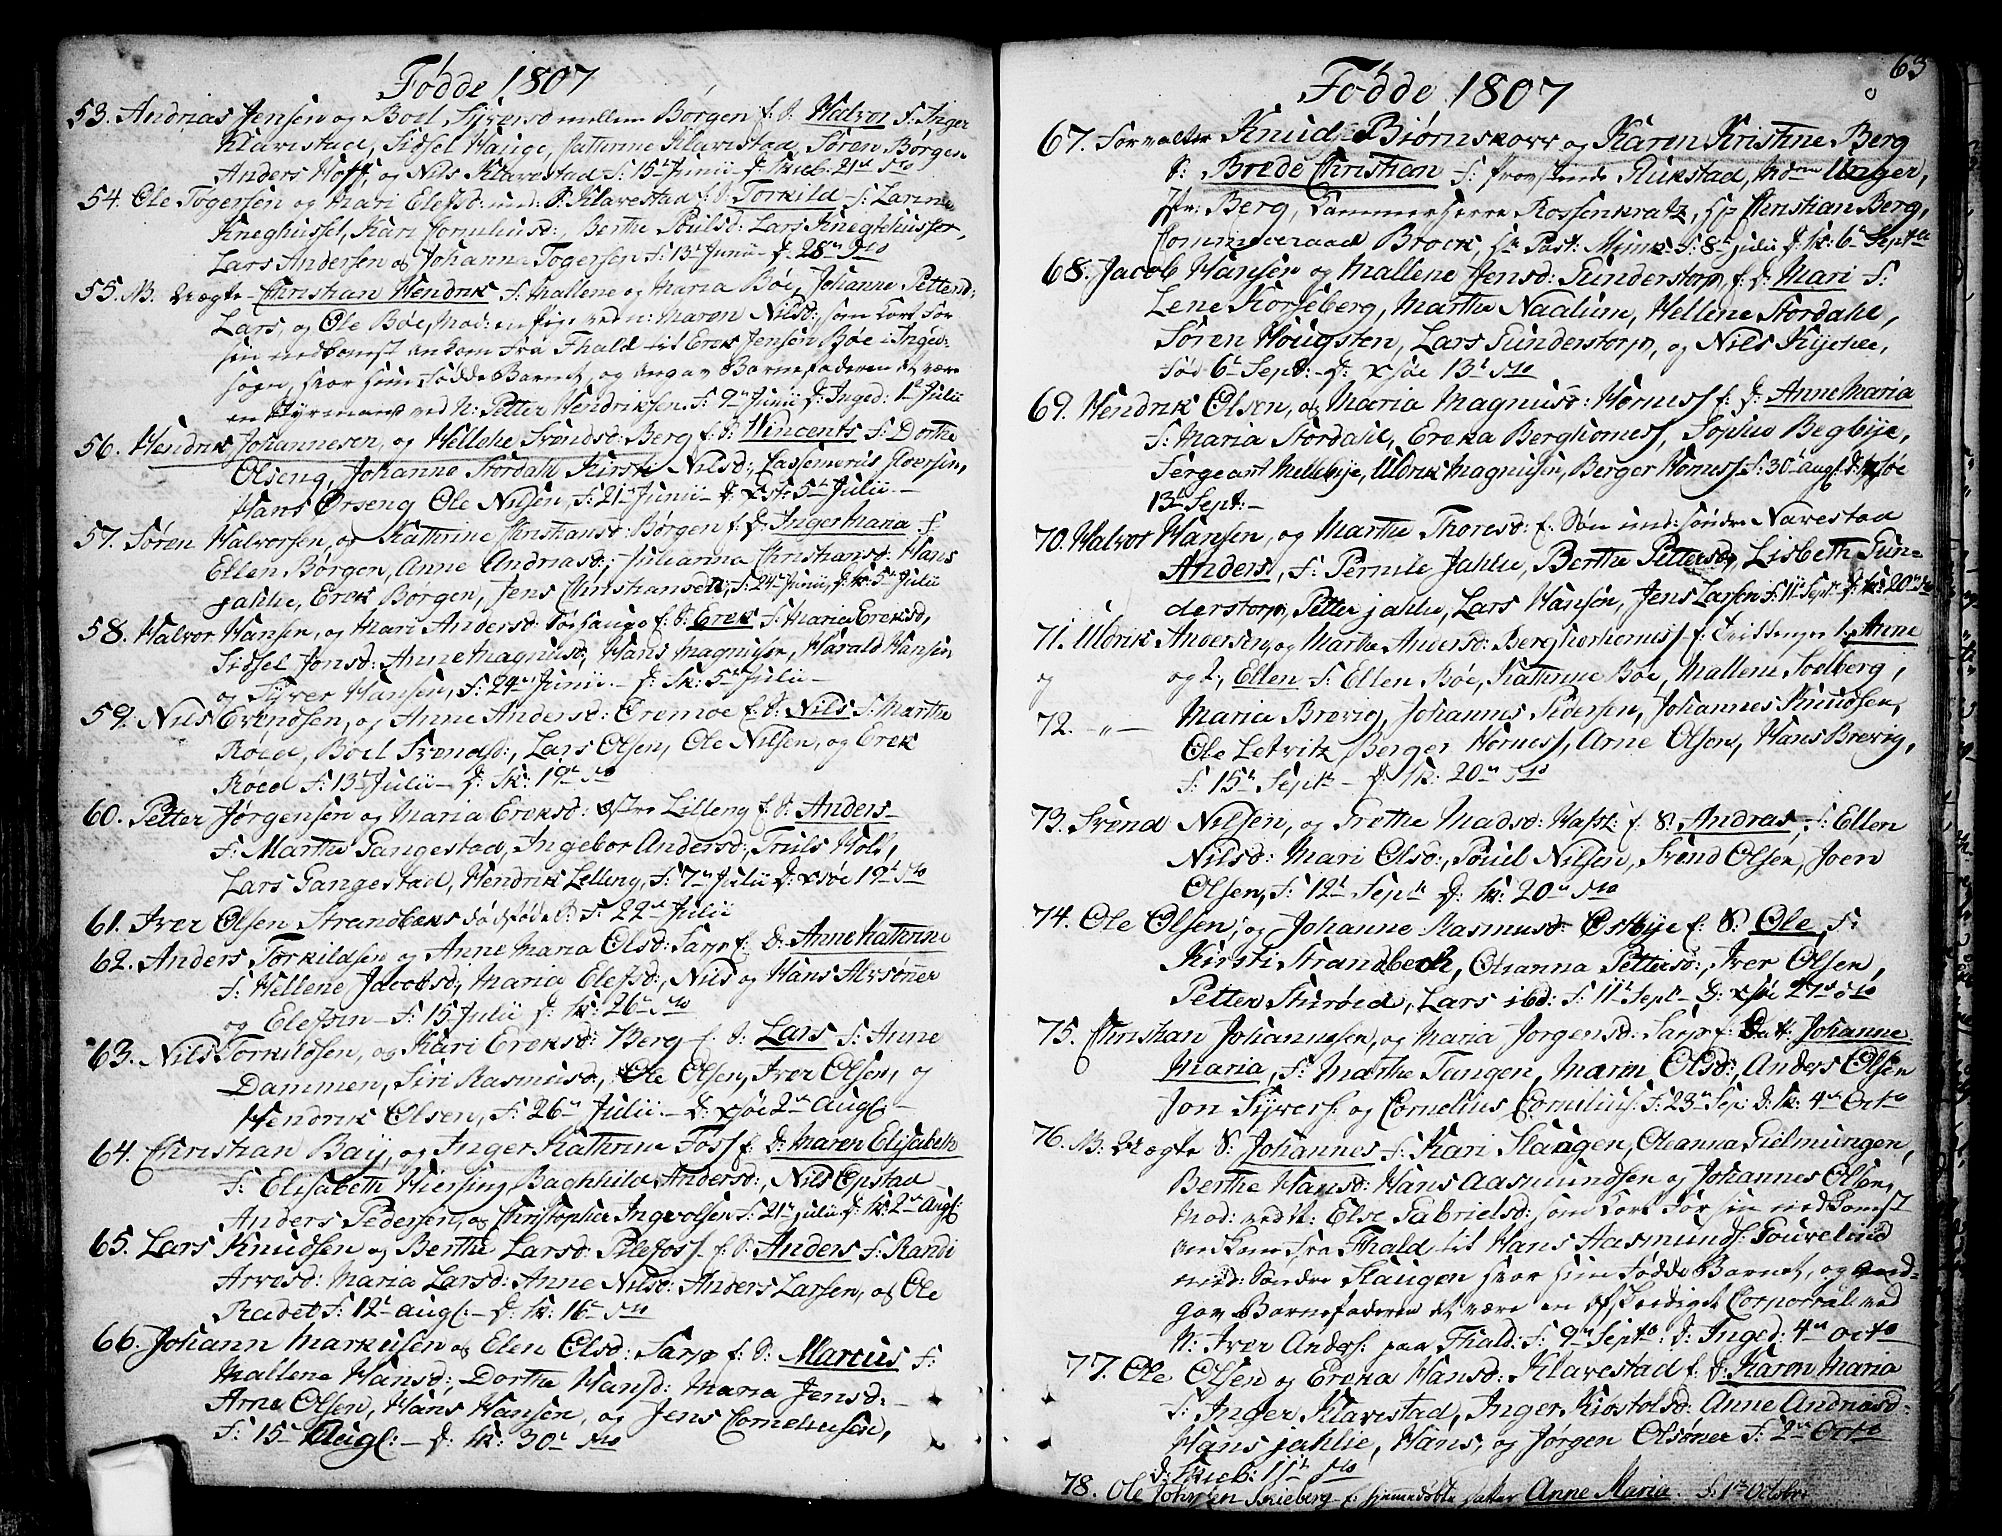 Fødde 1807
53. Andrias Jensen og Boel Syversd mellem Børgen f. S. Halvor F: Inger
Klavestad, Sidsel Hauge, Catterine Klavestad, Søren Børgen
Anders Hoff, og Nils Klavestad F: 15de Junii D: Skieb: 21de
54. Ole Togersen og Mari Elefsd: Klavestad f. S. Torkild F: Larine
Kneghusset, Kari Corneliusd:, Berthe Poulsd: Lars Knegtehusset,
Lars Andersen og Johanne Togersen F: 13de Junii D: 28de
55. NB. Uægte Christian Hendrik F: Mallene og Maria Bøe, Johanne Pettersd:
Lars, og Ole Bøe, Mod: en Pige ved n: Maren Nilsd:, som kort før
sin nedkomst ankom fra Fhald til Erek Jensen Bøe i Inged:
sogn, hvor hun fødde Barnet, og angav Barnefaderen at være
en Styrmand ved N: Petter Hendriksen. F: 9de Junii D: Inged: 1ste Julii
56. Hendrik Johannesen, og Hellehe Svendsd: Berg f. S: Wincents F: Dorthe
Olseng, Johanne Stordahl, Kirsti Nilsd:, Cassemerus
Hans Orseng Ole Nilsen, F: 21de Junii D: 5te Julii
57. Søren Halvorsen, og Kathrine Christiansd: Børgen f. D: Inger Maria F:
Ellen Børgen, Anne Andriasd:, Julianna Christiansd: Hans
Jahlie, Erek Borgen, Jens Christiansen, F: 24de Junii, D: k: 5te Julii
58. Halvor Hansen, og Mari Andersd: f. S. Erek F: Maria Ereksd,
Sidsel Jonsd: Anne Magnusd, Hans Magnusen, Harald Hansen
og Syver Hansen, F: 24de Junii D: k: 5te Julii
59. Nils Evendsen, og Anne Andersd: Eremoe f. S. Nils F: Marthe
Røed, Boel Svendsd:, Lars Olsen, Ole Nilsen, og Erek
Røed F: 13de Julii D: k: 19de
60. Petter Jørgensen og Maria Ereksd: Østre Lilleng f. S. Anders
F: Marthe Tangestad, Ingebor Andersd:, Truls Hols,
Lars Tangestad, Hendrik Lelleng, F: 7de Julii D: 19de
61. Iver Olsen Strandbeks dødfødt S: F: 22de Julii
62. Anders Torkildsen og Anne Maria Olsd: Sarp f: D: Anne Katterine
F: Hellene Jacobsd, Maria Elefsd:, Nils og Hans
og Elefsen F: 15 Julii D: k: 26de
63. Nils Torkildsen, og Kari Ereksd: Berg f. S: Lars F: Anne
Dammen, Siri Rasmusd, Ole Olsen, Iver Olsen, og
Hendrik Olsen, F: 26de Julii D: 2de Augl:
64. Christian Bay, og Inger Kathrine Foss f: D: Maren Elisabeth
F: Elisabeth Hiersing, Baghhild Andersd:, Nils Opstad
Anders Pedersen, og Christopher Ingvolsen F: 21de Julii D: k: 2de Augl:
65. Lars Knudsen og Berthe Larsd: Pilefoss f. S: Anders F: Randi
Arvesd: Maria Larsd: Anne Nilsd: Anders Larsen, og Ole
Radet F: 12te Augl: D: k: 16de
66. Johann Markusen og Elen Olsd: Sarp f: S: Marcus F:
Mallene Hansd:, Dorthe Hansd: Maria Jensd:
Arne Olsen, Hans Hansen, og Jens Corneliusen,
F: 15de Augl: D: k: 30de
63
Fødde 1807
67. Forvalter Knud Biørnskov og Karen Kristine Berg
S: Brede Christian F: Provstinde Rukstad, Md:me Unger,
Berg, Kammerherre Rossenkratz, Christian Berg,
Commeceraad Brock, F: 8de Julii D: k: 6te Septbr
68. Jacob Hansen og Mallene Jensd: Sunderstorp, f. D: Mari F:
Lene Korseberg, Marthe Naalum, Hellene Stordahl,
Søren Hougsten, Lars Sunderstorp, og Nils Kijehle,
Fød 6te Sept: D: 13de
69. Hendrik Olsen, og Maria Magnusd: Hornes f: D: Anne Maria
F: Maria Stordahl, Ereka Berghornes, Sophie Begbye,
Sergeant Mellebye, Uldrik Magnusen, Berger Hornes F: 30te Augl D:
13de Sept:
70. Halvor Hansen, og Marthe Thoresd: f: Søn Søndre Navestad
Anders, F: Pernile Jahlie, Berthe Pettersd, Lisbeth Sun-
derstorp, Petter Jahlie, Lars Hansen, Jens Larsen F: 11te Sept D: k: 20de
71. Uldrik Andersen, og Marthe Andersd: f. Tvillinger 1. Anne
og
og 2, Ellen F: Ellen Bøe, Kathrine Bøe, Mallene Soelberg,
72. -"- Maria Brevig, Johannes Pedersen, Johannes Knudsen,
Ole Letvitz, Berger Hornes, Arne Olsen, Hans Brevig,
F: 15de Septb: D: k: 20de
73. Svend Nilsen, og Grethe Madsd: f: S: Andras F: Ellen
Nilsd: Mari Olsd:, Pouel Nilsen, Svend Olsen, Joen
Olsen, F: 12te Septb D: k: 20de
74. Ole Olsen, og Johanne Rasmusd: Østbye f: S: Ole F:
Kirsti Strandbech, Oleanna Pettersd:, Iver Olsen,
Petter Stirøed, Lars ibd: F: 11te Septb D: 27de
75. Christian Johannesen, og Maria Jorgensd: Sarp f: Dat: Johanne
Maria, F: Marthe Tangen, Maren Olsd: Anders Olsen
Jon Syvers: og Cornelius Cornelius: F: 23de Sep: D: k: 4de Octo
76. NB: Uægte S. Johannes F: Kari Slaugen, Oleanna Gielmungen,
Berthe Hansd: Hans Aasmundsen og Johannes Olsen,
Mod: ved N: Else Gabrielsd: som kort før sin nedkomst
ankom fra Fhald til Hans Aasmunds:
Søndre Slaugen hvor hun fødde Barnet, og and-
gav Barnefaderen at være en afskediget Corporral ved
N: Iver Anders: paa Fhald: F: 9de Septb: D: Inged: 4de Octo
77. Ole Olsen og Ereka Hansd: Klavestad f. D: Karen Maria
F: Inger Klavestad, Inger Kiøstolsd: Anne Andriasd:
Hans Jahlie, Hans, og Jørgen Olsøner F: 2de Octo
D: Skieb: 11te
78. Ole Johnsen Skieberg f. hjemmedøbte datter Anne Maria F: 1ste Octobr